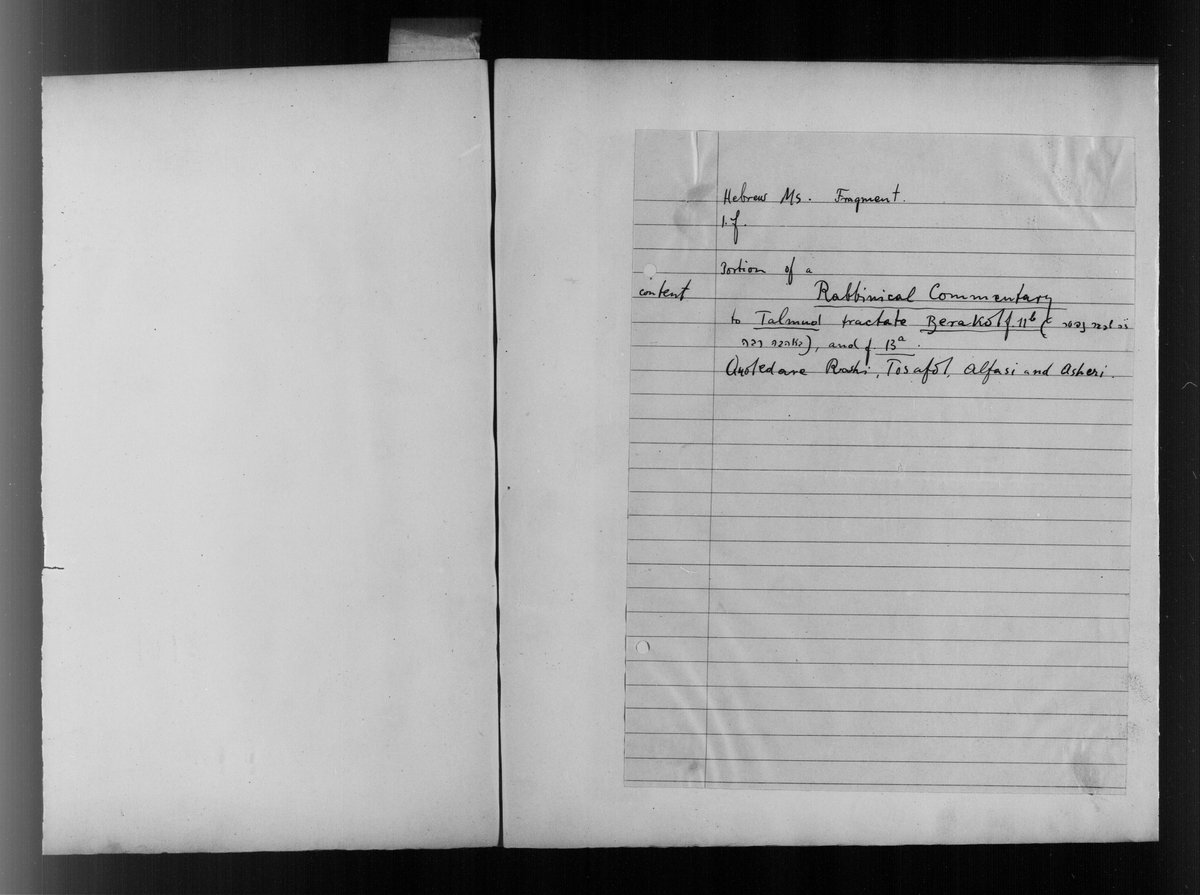 Hebrew Ms. Fragment.
1. f.
Portion of a
content Rabbinical Commentary
to Talmud tractate Berakot f. 11b (
), and f. 13a.
Quoted are Rashi, Tosafot, Alfasi and Asheri.